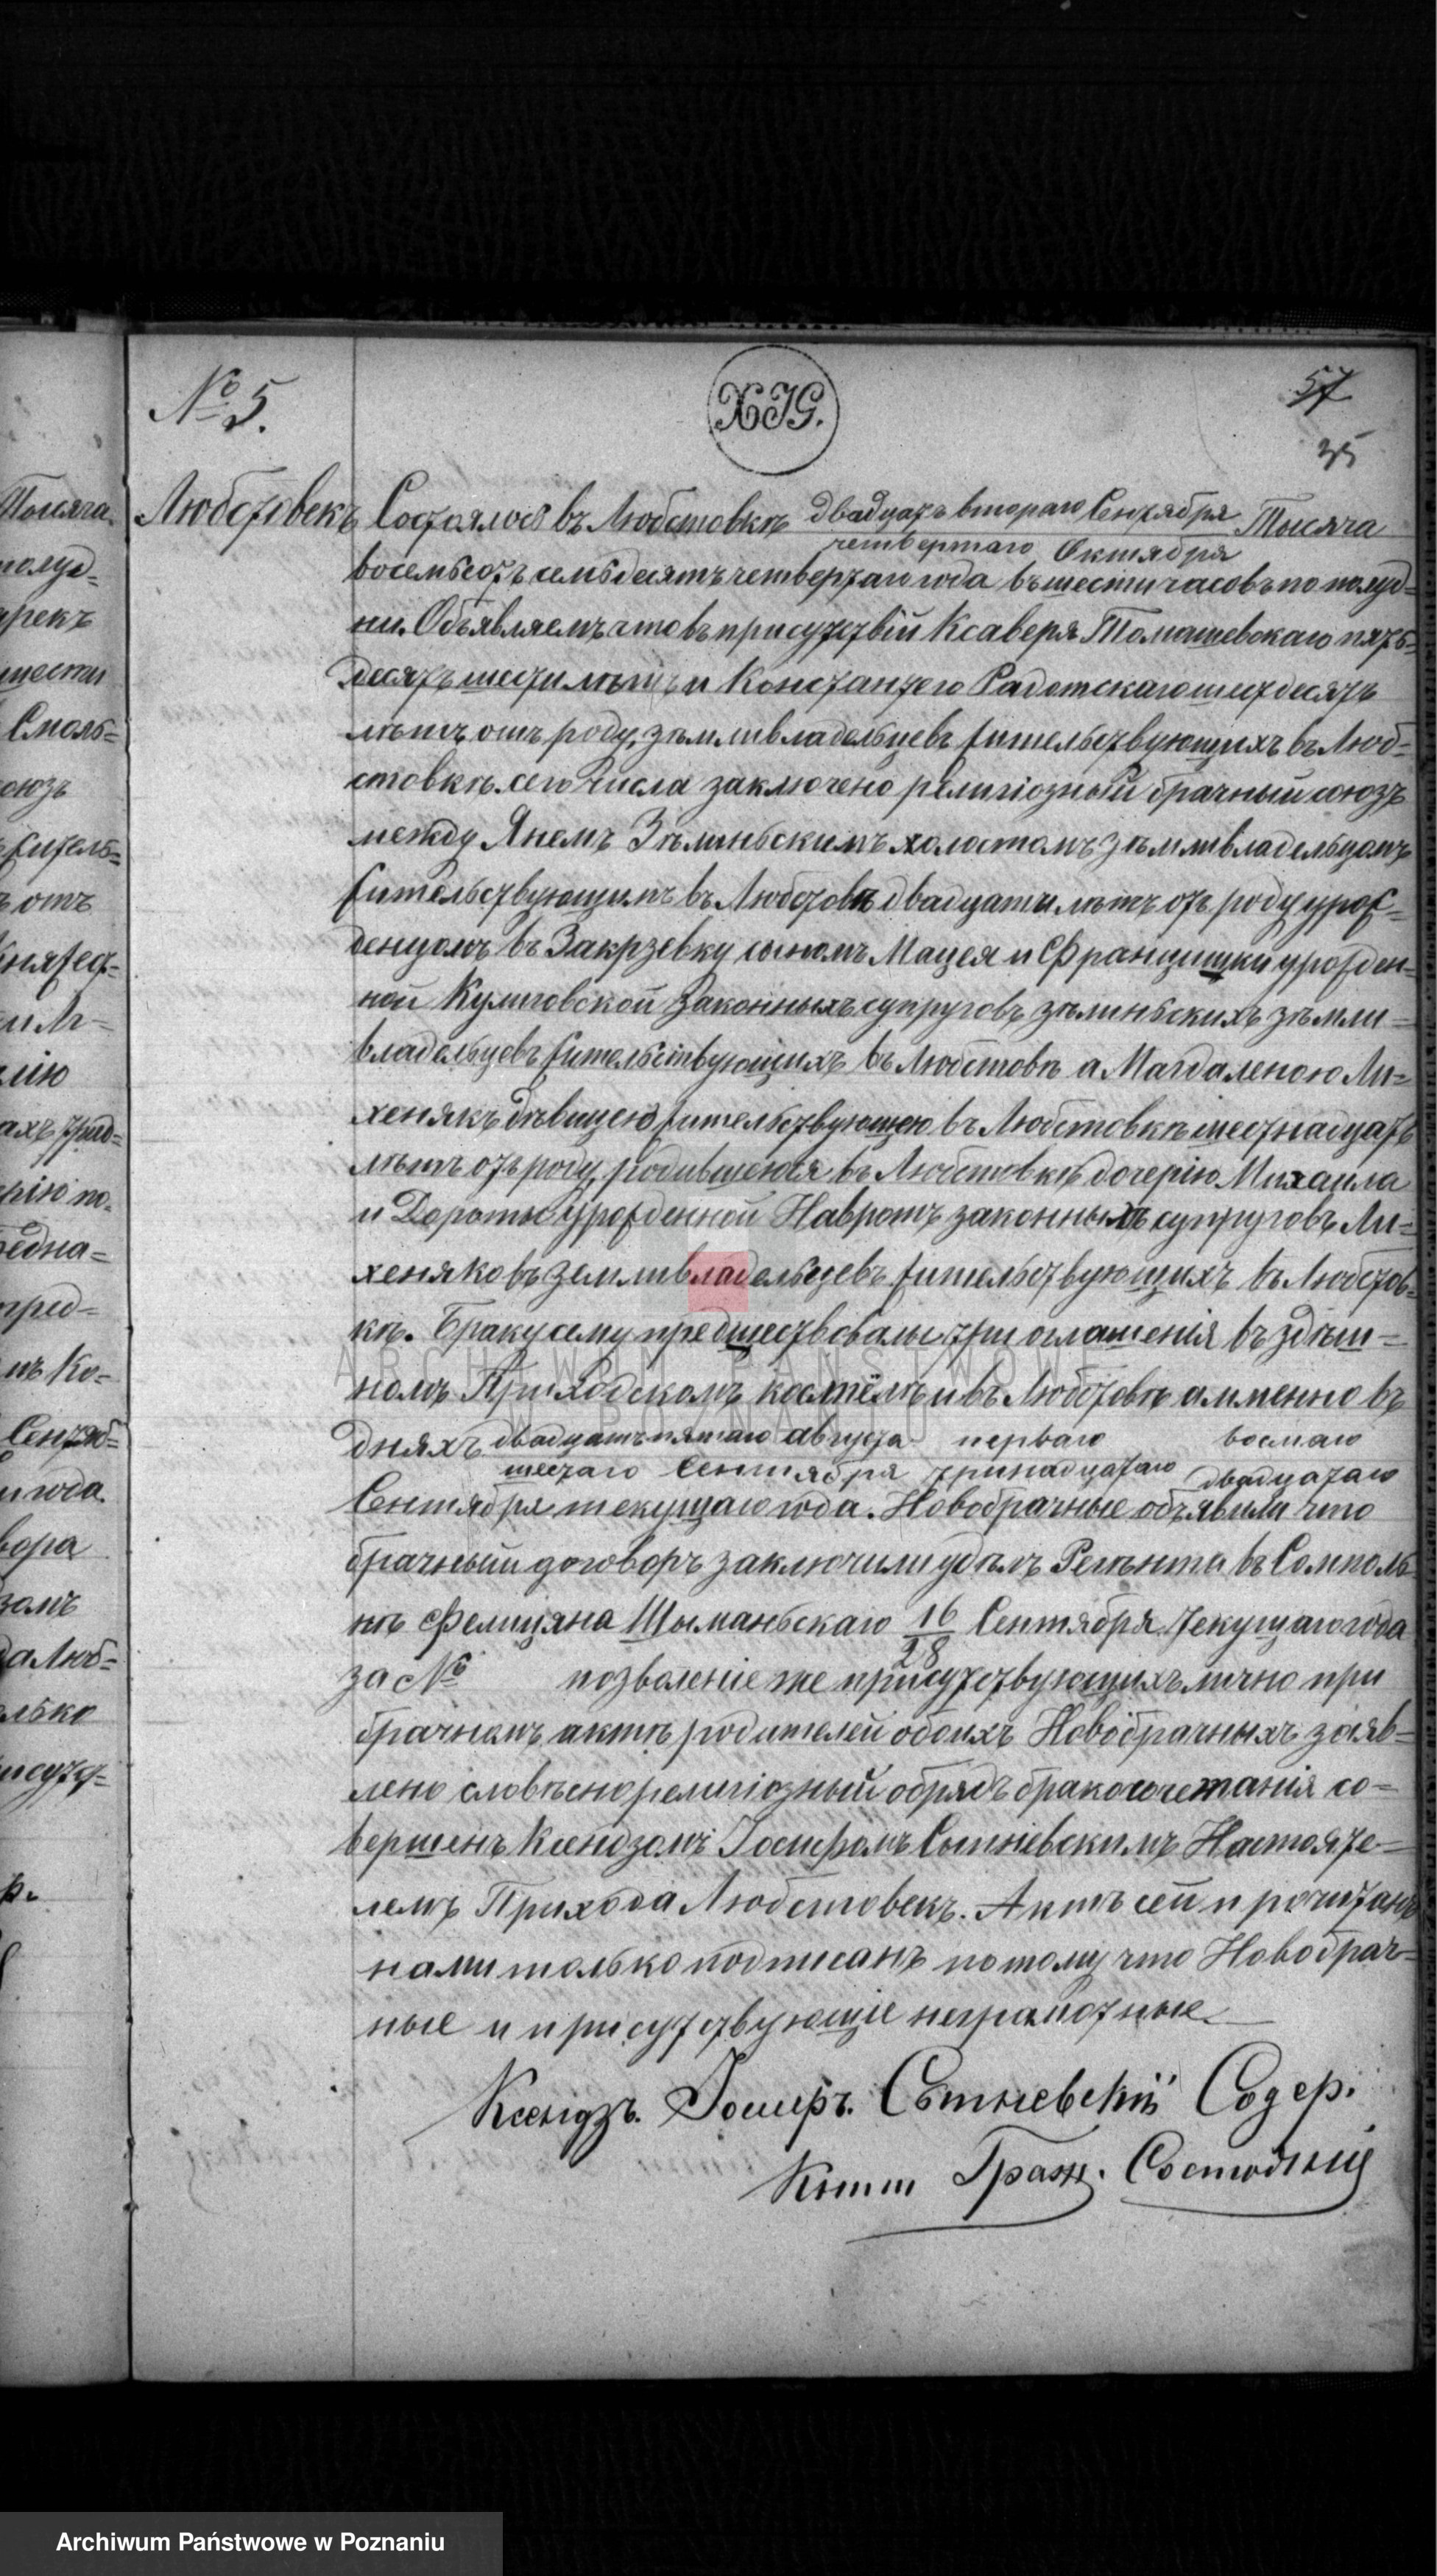 № 5.
ХІС.
57
35
Любстовекъ
Состоялось въ Любстовкѣ двадцать втораго Сентября Тысяча
четвертаго Октября
восемьсотъ семьдесятъ четвертаго года въ шести часовъ по полуд=
ни. Объявляемъ что въ присутствіи Ксаверя Томашевскаго пять=
десятъ шести лѣтъ и Константего Радомскаго шестдесятъ
лѣтъ отъ роду, зѣмливладельцевъ жительствующихъ въ Люб=
стовкѣ. сего числа заключено религіозный брачный союзъ
между Янемъ Зѣлиньскимъ холостомъ зѣмливладельцомъ
жительствующимъ въ Любстовкѣ двадцати лѣтъ отъ роду урож=
денцомъ въ Закрзевку сыномъ Мацея и Францишки урожден=
ной Кулиговской Законныхъ супруговъ зѣлиньскихъ зѣмли=
владельцевъ жительствующихъ въ Любстовкѣ а Магдаленою Ли=
хенякъ дѣвицею жительствующею въ Любстовкѣ шестнадцать
лѣтъ отъ роду, родившеюся въ Любстовкѣ дочерію Михаила
и Дороты урожденной Навротъ законныхъ супруговъ Ли=
хеняковъ земливладельцевъ жительствующихъ въ Любстов=
кѣ. Браку сему предшествовалы три оглашенія въ здѣш=
номъ Приходскомъ костёлѣ и въ Любстовкѣ а именно въ
дняхъ двадцать пятаго августа перваго восмаго
шестаго Сентября тринадцатаго двадцатаго
Сентября текущаго года. Новобрачные объявили что
брачный договоръ заключили удѣлъ Реента въ Сомполь
нѣ Фелицяна Шыманьскаго 16/28 Сентября текущаго года
за № позволеніе же присутствующихъ лично при
брачномъ актѣ родителей обоихъ Новобрачныхъ заяв=
лено словѣсно религіозный обрядъ бракосочетанія со=
вершенъ Ксендзомъ Іосифомъ Сытневскимъ Настояте=
лемъ Прихода Любстовекъ. Актъ сей прочитанъ
нами только подписанъ потому что Новобрач=
ные и присутствующіе неграмотные.
Ксендзъ. Іосифъ. Сытневскій Содер.
Книги Граж. Состоянія
Archiwum Państwowe w Poznaniu
ARCHIWUM PAŃSTWOWE
W POZNANIU